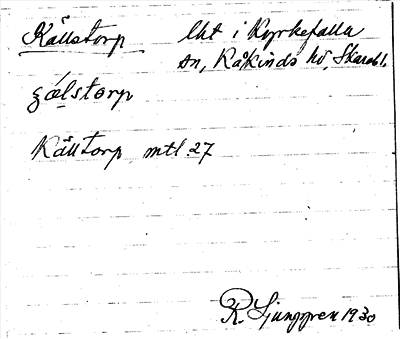 Källstorp lht i Kyrkefalla
sn, Kåkinds hd, Skarabl.
ʒælstorp
Källtorp mtl 27
R. Ljunggren 1930